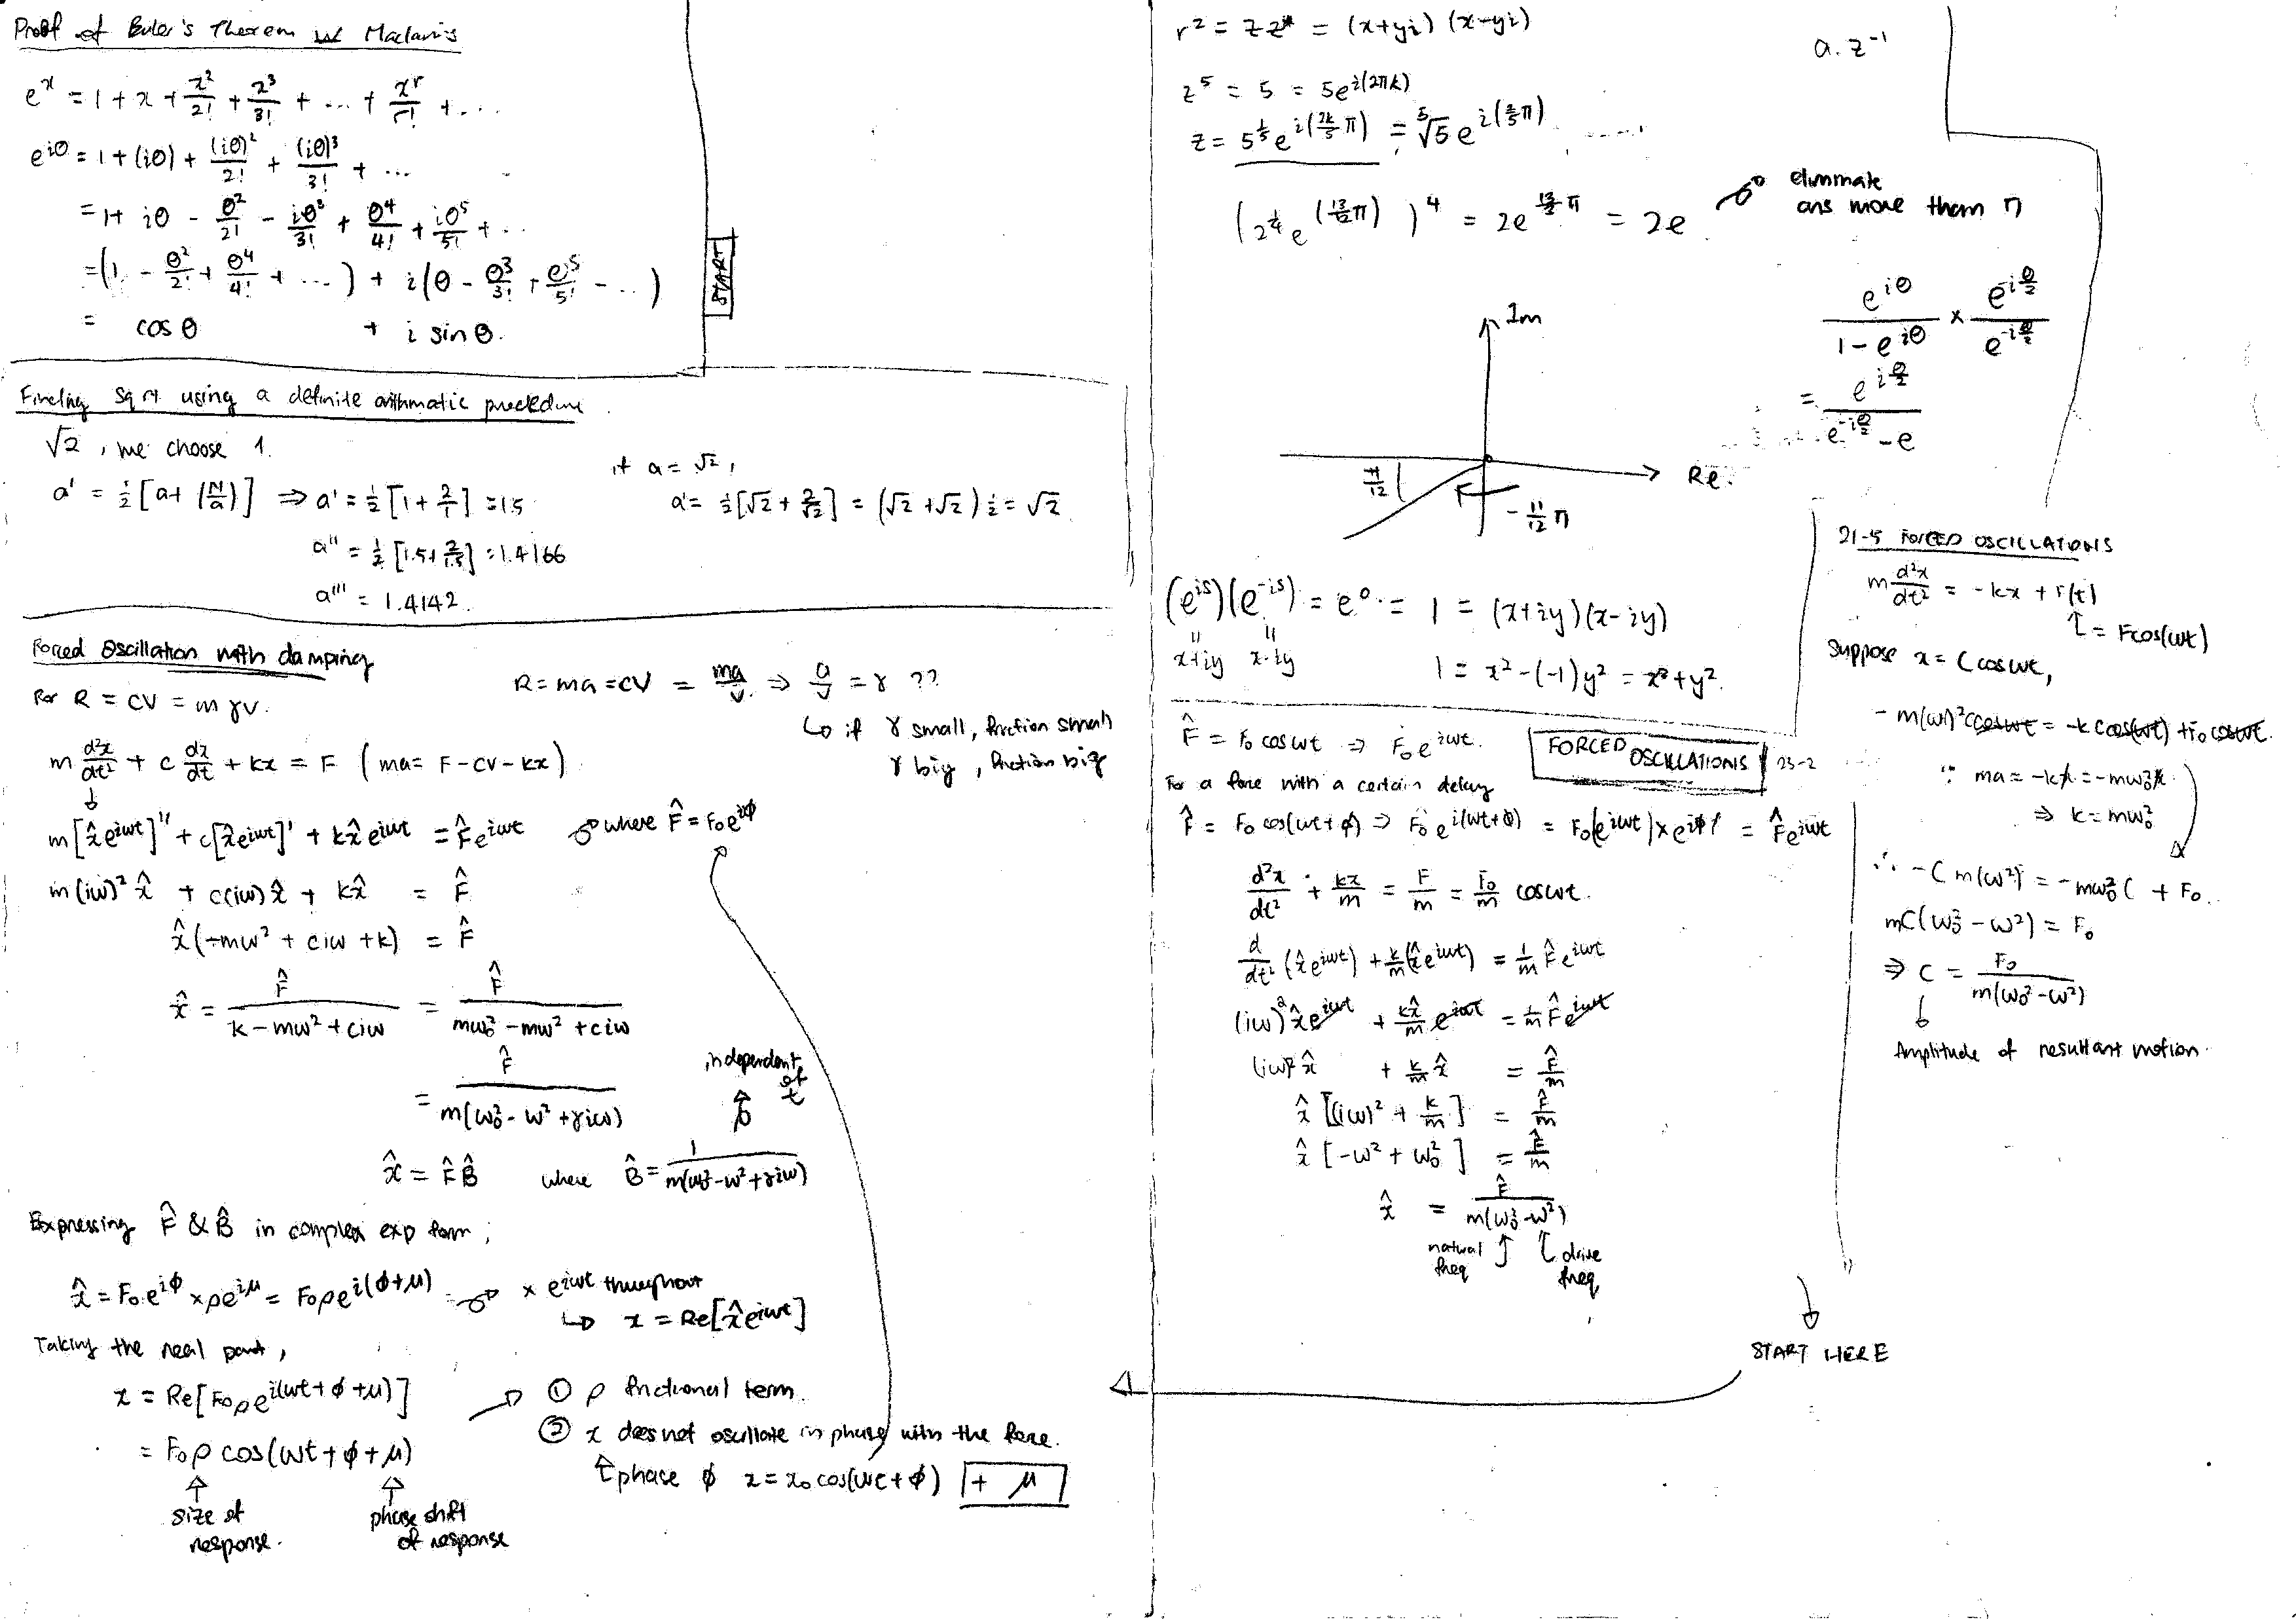 Proof of Euler's Theorem w Maclaurin's
e^x = 1 + x + x²/2! + x³/3! + ... + x^r/r! + ...
e^{iθ} = 1 + (iθ) + (iθ)²/2! + (iθ)³/3! + ...
= 1 + iθ - θ²/2! - iθ³/3! + θ⁴/4! + iθ⁵/5! + ...
= (1 - θ²/2! + θ⁴/4! + ...) + i(θ - θ³/3! + θ⁵/5! - ...)
= cos θ + i sin θ.
START
Finding sqrt using a definite arithmatic procedure.
√2, we choose 1.
a' = ½[a + (N/a)] ⇒ a' = ½[1 + 2/1] = 1.5
a'' = ½[1.5 + 2/1.5] = 1.4166
a''' = 1.4142
if a = √2,
a' = ½[√2 + 2/√2] = (√2 + √2)½ = √2
Forced Oscillation with damping
For R = cv = mγv.
R = ma = cv = ma/v ⇒ a/v = γ ??
↳ if γ small, friction small
γ big, friction big
m d²x/dt² + c dx/dt + kx = F (ma = F - cv - kx)
m[x̂e^{iωt}]'' + c[x̂e^{iωt}]' + kx̂e^{iωt} = F̂e^{iωt} where F̂ = F₀e^{iφ}
m(iω)²x̂ + c(iω)x̂ + kx̂ = F̂
x̂(-mω² + ciω + k) = F̂
x̂ = F̂/(k - mω² + ciω) = F̂/(mω₀² - mω² + ciω)
= F̂/m(ω₀² - ω² + γiω)
independent of t
x̂ = F̂B̂ where B̂ = 1/m(ω₀² - ω² + γiω)
Expressing F̂ & B̂ in complex exp form,
x̂ = F₀e^{iφ} × ρe^{iμ} = F₀ρe^{i(φ+μ)} × e^{iωt} throughout
↳ x = Re[x̂e^{iωt}]
Taking the real part,
x = Re[F₀ρe^{i(ωt+φ+μ)}]
= F₀ρ cos(ωt + φ + μ)
size of response.
phase shift of response
① ρ frictional term.
② x does not oscillate in phase with the force.
↑ phase φ x = x₀cos(ωt + φ) + μ
r² = zz* = (x+yi)(x-yi)
a. z⁻¹
z⁵ = 5 = 5e^{i(2πk)}
z = 5^{1/5}e^{i(2k/5 π)} = ⁵√5 e^{i(2/5 π)}, ......
(2^{1/4}e^{(13/12 π)})⁴ = 2e^{13/3 π} = 2e
eliminate
ans more than π
e^{iθ}/(1 - e^{iθ}) × e^{-iθ/2}/e^{-iθ/2}
= e^{iθ/2}/(e^{-iθ/2} - e
Im
Re.
π/12
-11/12 π
(e^{is})(e^{-is}) = e⁰ = 1 = (x+iy)(x-iy)
x+iy x-iy
1 = x² - (-1)y² = x² + y².
F̂ = F₀ cos ωt ⇒ F₀e^{iωt}.
FORCED OSCILLATIONS 23-2
For a force with a certain delay
F̂ = F₀ cos(ωt + φ) ⇒ F₀e^{i(ωt+φ)} = F₀(e^{iωt}) × e^{iφ} = F̂e^{iωt}
d²x/dt² + kx/m = F/m = F₀/m cos ωt.
d/dt²(x̂e^{iωt}) + k/m(x̂e^{iωt}) = 1/m F̂e^{iωt}
(iω)²x̂e^{iωt} + kx̂/m e^{iωt} = 1/m F̂e^{iωt}
(iω)²x̂ + k/m x̂ = F̂/m
x̂[(iω)² + k/m] = F̂/m
x̂[-ω² + ω₀²] = F̂/m
x̂ = F̂/m(ω₀² - ω²)
natural freq
drive freq
21-5 FORCED OSCILLATIONS
m d²x/dt² = -kx + F(t)
↑ = Fcos(ωt)
Suppose x = C cos ωt,
-m(ω)²C cos ωt = -k C cos(ωt) + F₀ cos ωt.
∵ ma = -kx = -mω₀²x.
⇒ k = mω₀²
∴ -C m(ω²) = -mω₀²C + F₀.
mC(ω₀² - ω²) = F₀
⇒ C = F₀/m(ω₀² - ω²)
Amplitude of resultant motion.
START HERE